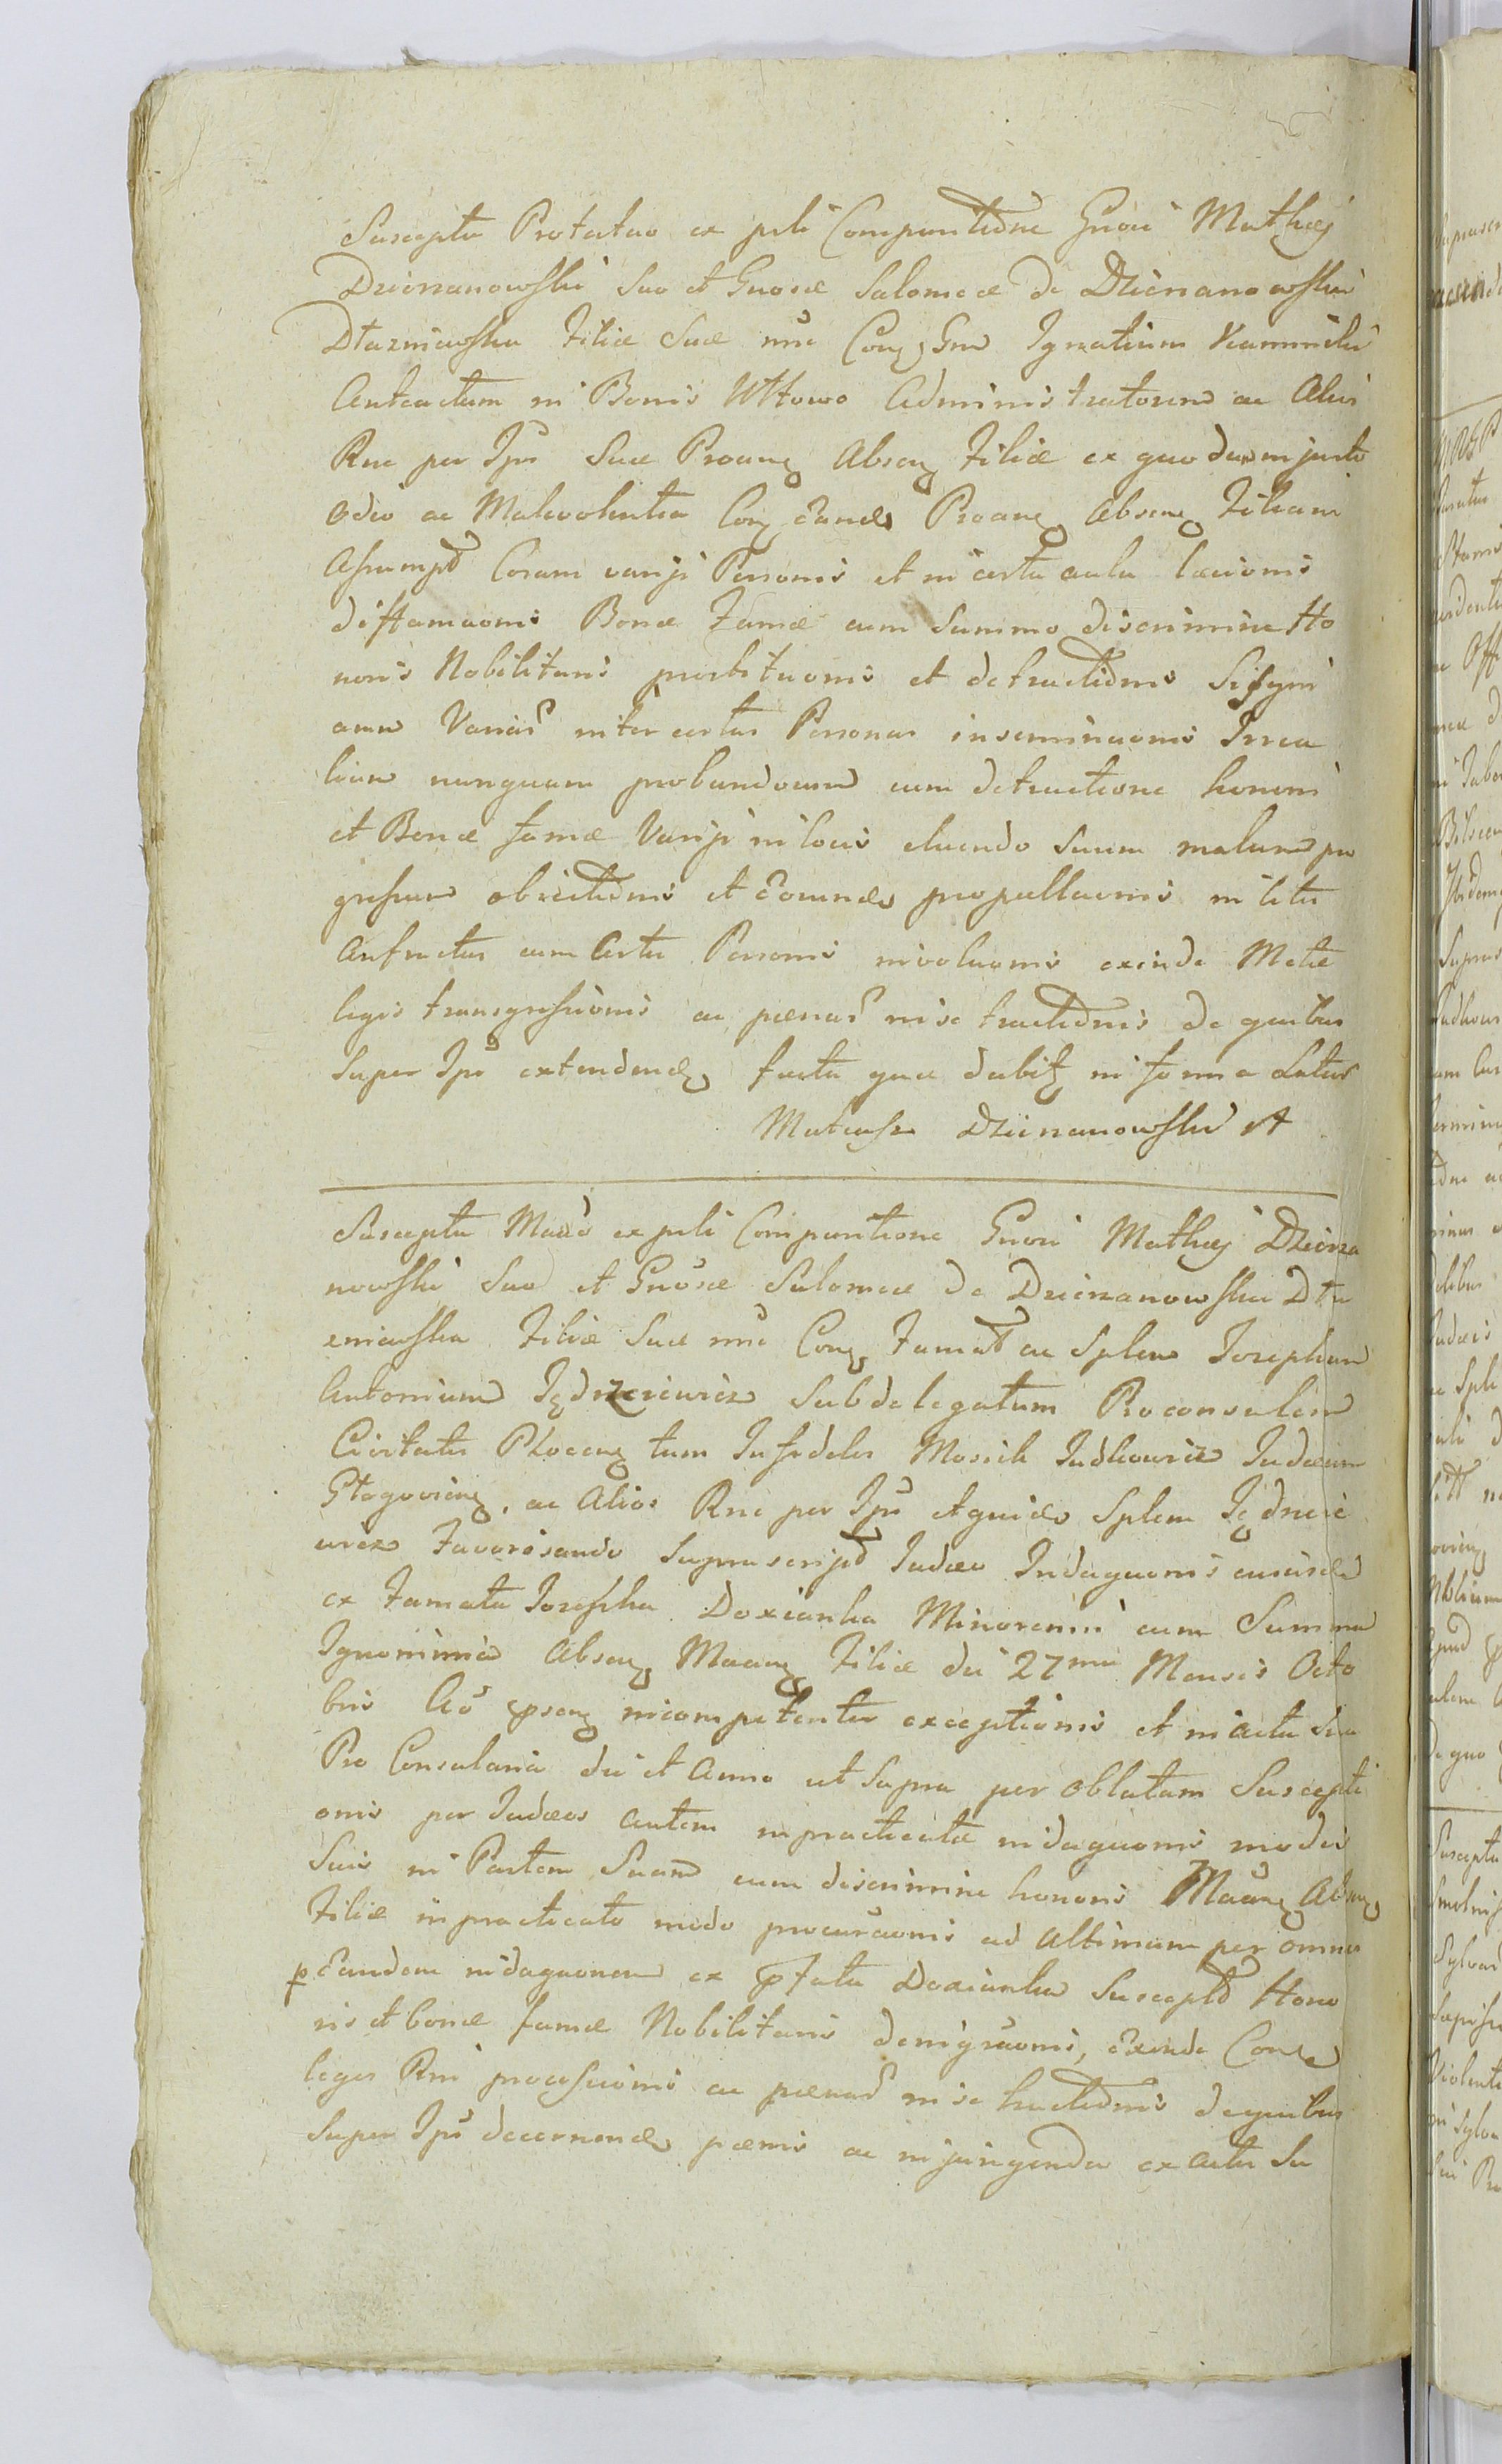 Suscepta Protatao ex psli Comparitiōne Gnōri Mathej
Dzierzanowski Suo et Gnosæ Salomeæ de Dzierzanowskie
Dłuzniewska Filiæ Suæ nnē Conz Gnu Ignatium Kaminski
Anteactum in Bonis Uttowo Administratorem ac Alios
Rne per Ipū Suæ Proanz Absenz Filiæ ex quodam injusto
odio ac Malevolentia Conz eand Proanz Absenz Filiam
Assumpt Coram varijs Personis et in certa aula læsionis
diffamaonis Bonæ Famæ cum Summo discrimine Ho
noris Nobilitaris prostituonis et detractiōnis Sissymi
arum Variar inter certas Personas inseminaonis Irrea
lium nunquam probandorum cum detractione honoris
et Bonæ famæ Varijs in locis eluendo Suum malum pro
gressum obiectiōnis et eorund propallaonis in lites
Anfractus cum Certis Personis involuonis exinde Metæ
legis transgressionis ac pænar in se tractiōnis de quibus
Super Ipū extendend facta quæ debitz in forma Latur
Mateusz Dzierzanowski A
Suscepta Maāo ex psli Comparitione Gnōri Mathej Dzierza
nowski Suo et Gnōsæ Salomeæ de Dzierzanowskie Dłu
zniewska Filiæ Suæ nnē Conz Famat ac Splem Josephum
Antonium Jędrzeiewicz Subdelegatum Proconsulem
Civitatis Płocenz tum Infideles Mosiek Judkowicz Judæum
Głogovienz. ac Alios Rne per Ipū et quid Splem Jędrzeie
wicz Favorisando Suprascript Judæo Indagaonis cuiusd
ex Famata Josepha Doxianka Minorenni cum Summa
Ignominia Absenz Maanz Filiæ die 27ma Mensis Octo
bris Aō psenz incompetenter exceptionis et in acta Sua
Pro Consularia die et Anno ut Supra per Oblatam Suscepti
onis per Judæos autem inpracticatæ indagaonis modis
Suis in Partem Suam cum discrimine honoris Maānz Absenz
Filiæ inpracticato modo procuraonis ad Altimum per omnes
p Eandem indagaonem ex pfata Doxianka Suscept Hono
ris et bonæ famæ Nobilitaris denigraonis, Exinde Contra
leges Rni processionis ac pænar in se tractiōnis de quibus
Super Ipū decernend pænis ac injungenda ex actis Su